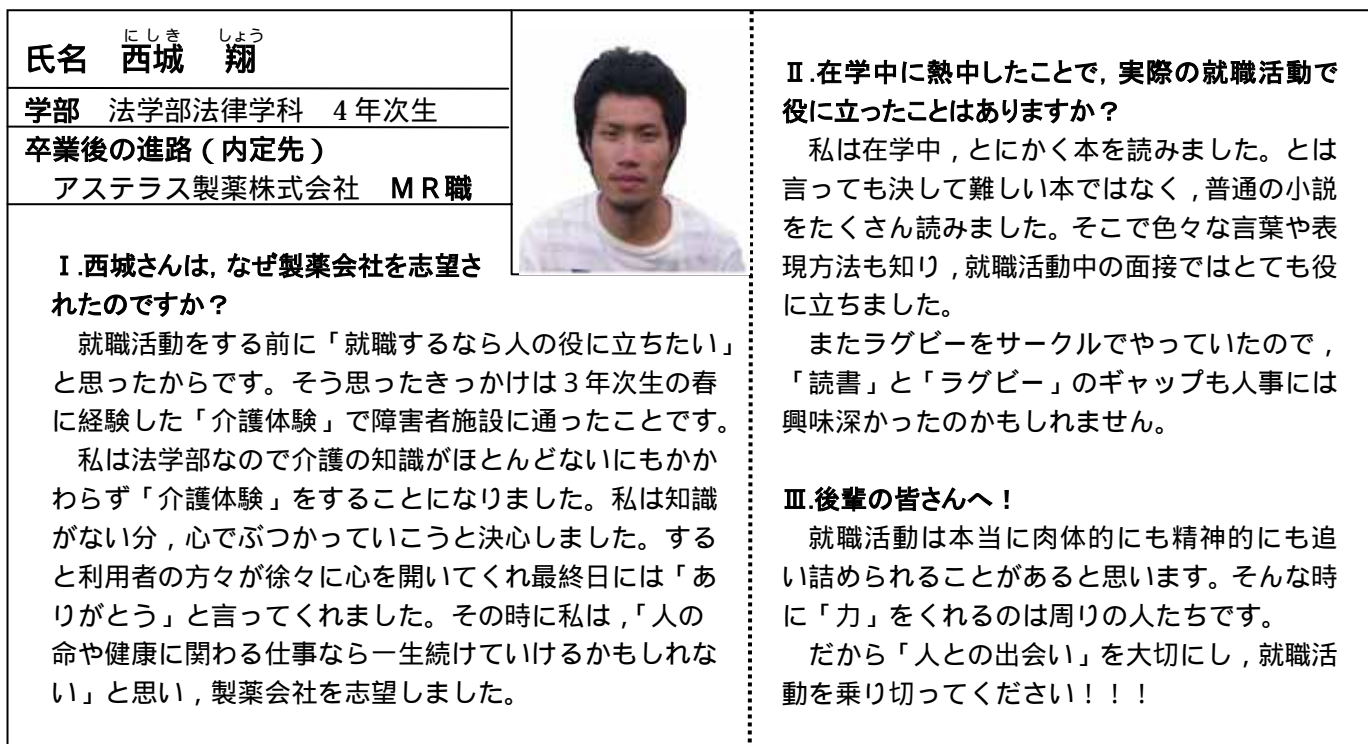 にしき しょう
氏名 西城 翔
学部 法学部法律学科 4年次生
卒業後の進路(内定先)
アステラス製薬株式会社 MR職
Ⅰ.西城さんは,なぜ製薬会社を志望さ
れたのですか?
就職活動をする前に「就職するなら人の役に立ちたい」
と思ったからです。そう思ったきっかけは3年次生の春
に経験した「介護体験」で障害者施設に通ったことです。
私は法学部なので介護の知識がほとんどないにもかか
わらず「介護体験」をすることになりました。私は知識
がない分,心でぶつかっていこうと決心しました。する
と利用者の方々が徐々に心を開いてくれ最終日には「あ
りがとう」と言ってくれました。その時に私は,「人の
命や健康に関わる仕事なら一生続けていけるかもしれな
い」と思い,製薬会社を志望しました。
Ⅱ.在学中に熱中したことで,実際の就職活動で
役に立ったことはありますか?
私は在学中,とにかく本を読みました。とは
言っても決して難しい本ではなく,普通の小説
をたくさん読みました。そこで色々な言葉や表
現方法も知り,就職活動中の面接ではとても役
に立ちました。
またラグビーをサークルでやっていたので,
「読書」と「ラグビー」のギャップも人事には
興味深かったのかもしれません。
Ⅲ.後輩の皆さんへ!
就職活動は本当に肉体的にも精神的にも追
い詰められることがあると思います。そんな時
に「力」をくれるのは周りの人たちです。
だから「人との出会い」を大切にし,就職活
動を乗り切ってください!!!